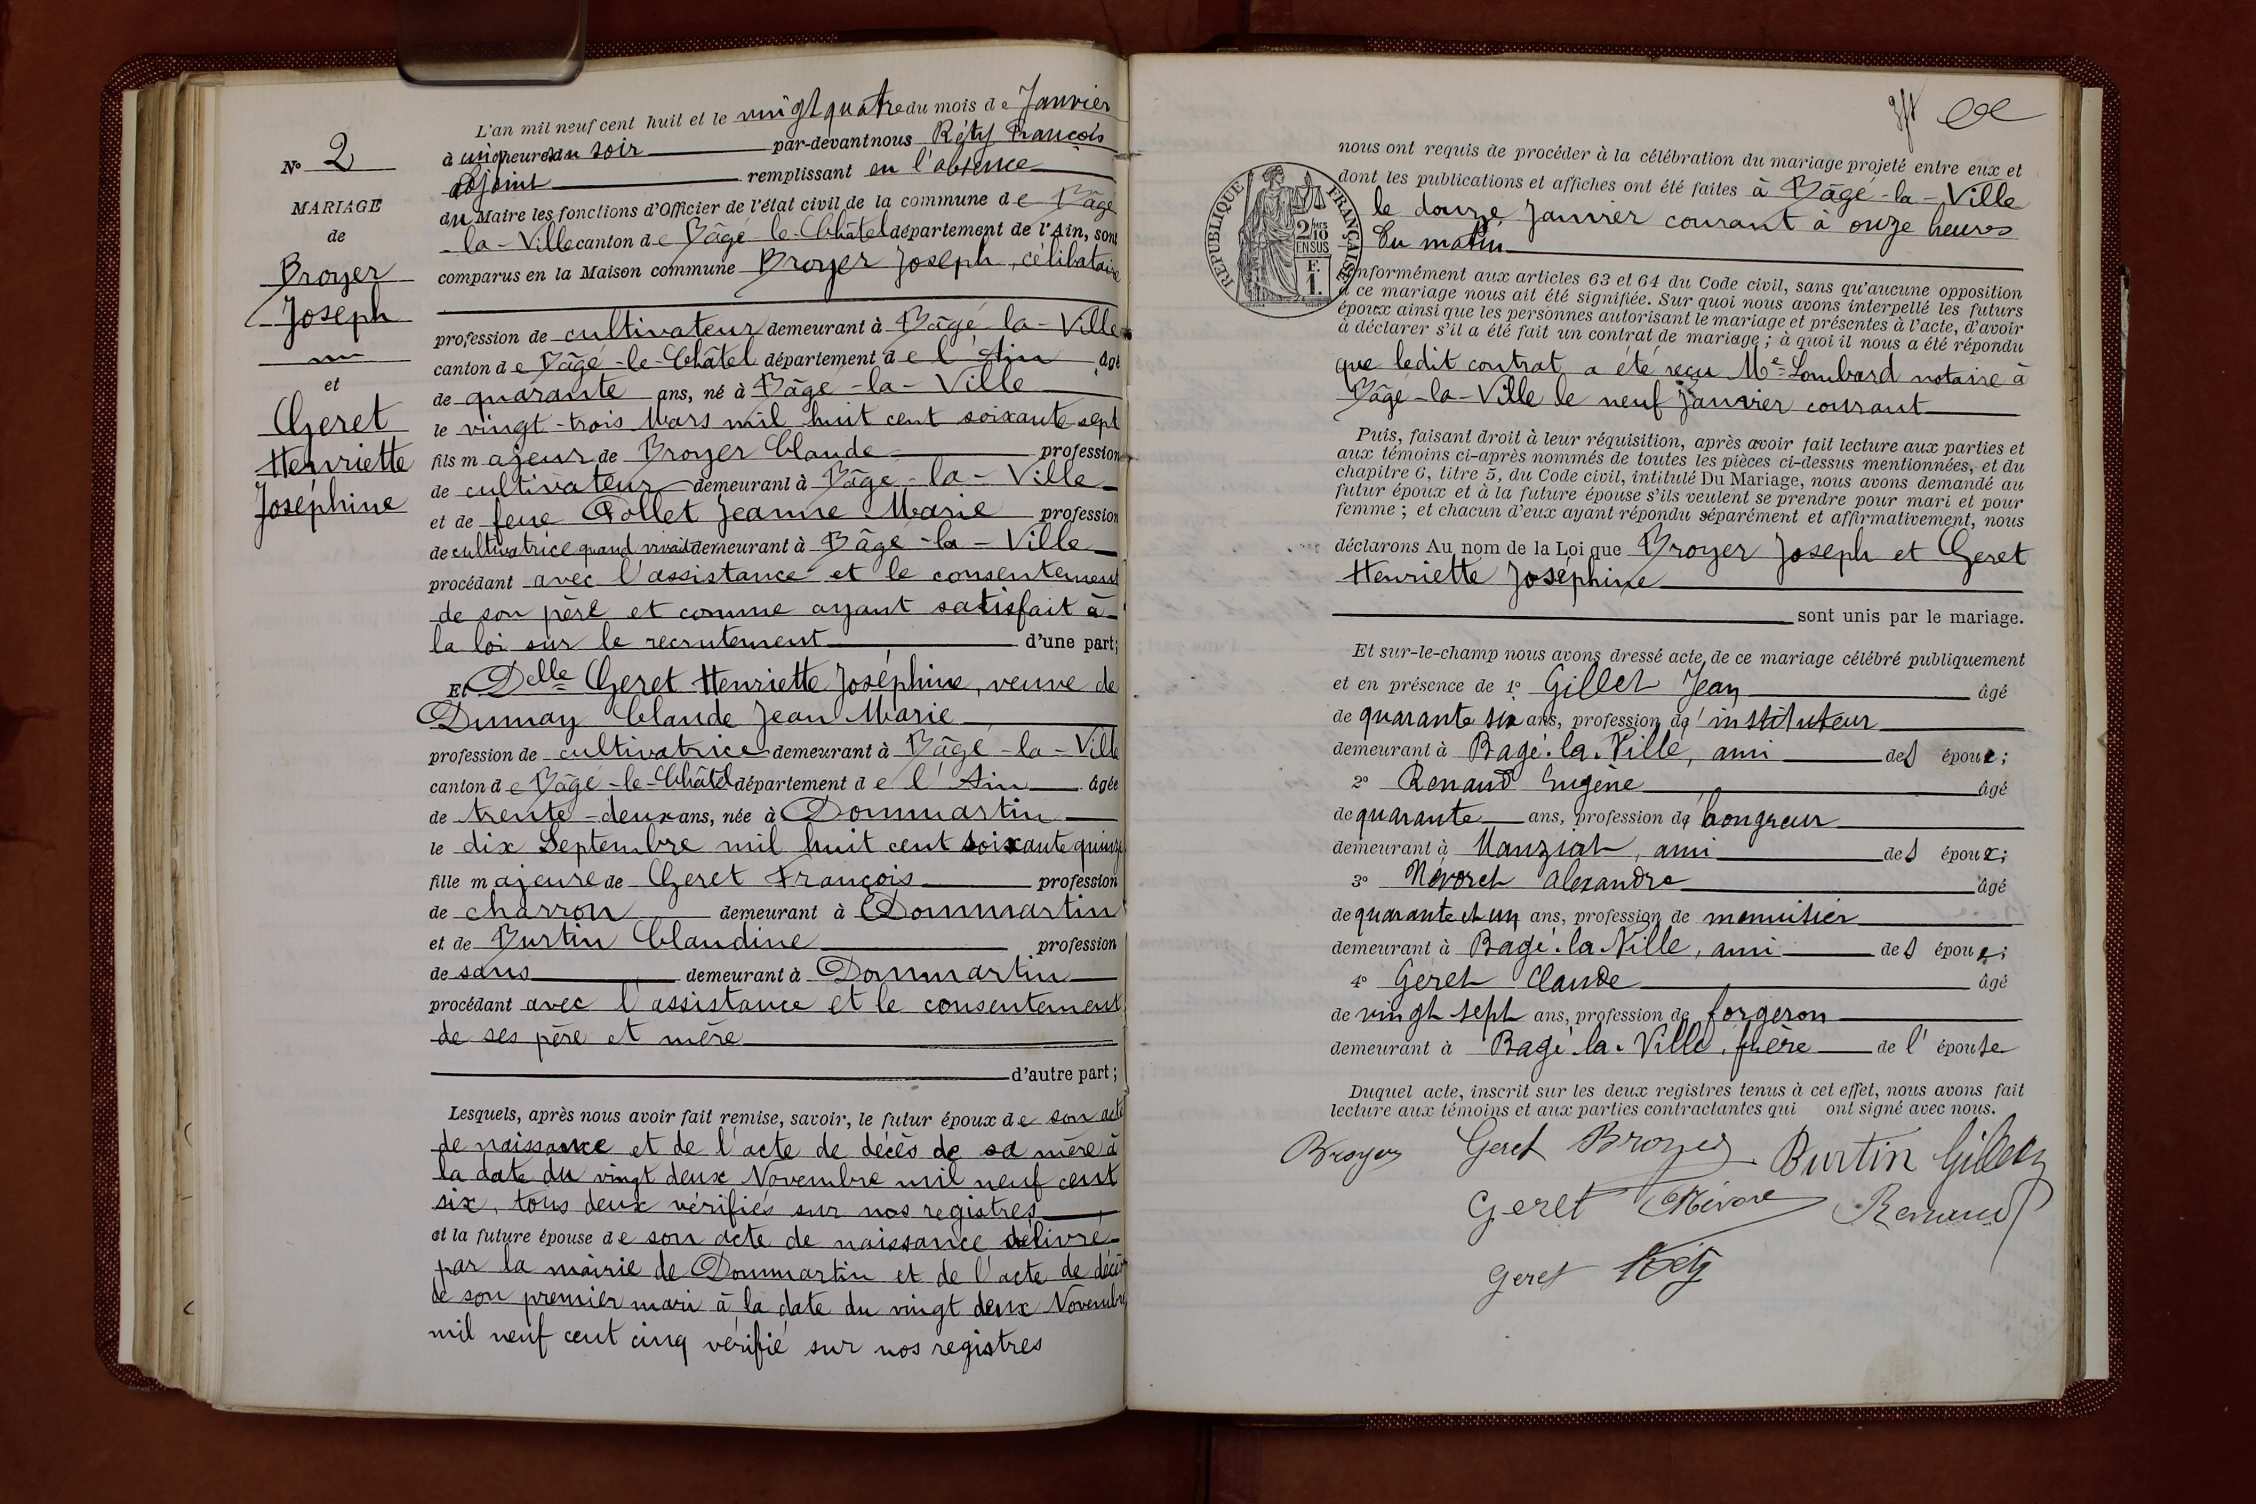 N° 2
MARIAGE
de
Broyer
Joseph
et
Geret
Henriette
Joséphine
L'an mil neuf cent huit et le vingt quatre du mois de Janvier
à une heure du soir par-devant nous Réty François
adjoint remplissant en l'absence
du Maire les fonctions d'Officier de l'état civil de la commune de Bâgé
-la-Ville canton de Bâgé-le-Châtel département de l'Ain, sont
comparus en la Maison commune Broyer Joseph, célibataire
profession de cultivateur demeurant à Bâgé-la-Ville
canton de Bâgé-le-Châtel département de l'Ain âgé
de quarante ans, né à Bâgé-la-Ville
le vingt-trois Mars mil huit cent soixante sept
fils majeur de Broyer Claude profession
de cultivateur demeurant à Bâgé-la-Ville
et de feue Pollet Jeanne Marie profession
de cultivatrice quand vivait demeurant à Bâgé-la-Ville
procédant avec l'assistance et le consentement
de son père et comme ayant satisfait à
la loi sur le recrutement d'une part;
Et Delle Geret Henriette Joséphine, veuve de
Dumay Claude Jean Marie
profession de cultivatrice demeurant à Bâgé-la-Ville
canton de Bâgé-le-Châtel département de l'Ain âgée
de trente-deux ans, née à Dommartin
le dix Septembre mil huit cent soixante quinze
fille majeure de Geret François profession
de charron demeurant à Dommartin
et de Burtin Claudine profession
de sans demeurant à Dommartin
procédant avec l'assistance et le consentement
de ses père et mère
d'autre part;
Lesquels, après nous avoir fait remise, savoir, le futur époux de son acte
de naissance et de l'acte de décès de sa mère à
la date du vingt deux Novembre mil neuf cent
six, tous deux vérifiés sur nos registres
et la future épouse de son acte de naissance délivré
par la mairie de Dommartin et de l'acte de décès
de son premier mari à la date du vingt deux Novembre
mil neuf cent cinq vérifié sur nos registres
nous ont requis de procéder à la célébration du mariage projeté entre eux et
dont les publications et affiches ont été faites à Bâgé-la-Ville
le douze Janvier courant à onze heures
du matin
RÉPUBLIQUE FRANÇAISE
2/10 EN SUS
F. 1.
conformément aux articles 63 et 64 du Code civil, sans qu'aucune opposition
à ce mariage nous ait été signifiée. Sur quoi nous avons interpellé les futurs
époux ainsi que les personnes autorisant le mariage et présentes à l'acte, d'avoir
à déclarer s'il a été fait un contrat de mariage; à quoi il nous a été répondu
que ledit contrat a été reçu Me Lombard notaire à
Bâgé-la-Ville le neuf Janvier courant
Puis, faisant droit à leur réquisition, après avoir fait lecture aux parties et
aux témoins ci-après nommés de toutes les pièces ci-dessus mentionnées, et du
chapitre 6, titre 5, du Code civil, intitulé Du Mariage, nous avons demandé au
futur époux et à la future épouse s'ils veulent se prendre pour mari et pour
femme; et chacun d'eux ayant répondu séparément et affirmativement, nous
déclarons Au nom de la Loi que Broyer Joseph et Geret
Henriette Joséphine
sont unis par le mariage.
Et sur-le-champ nous avons dressé acte de ce mariage célébré publiquement
et en présence de 1° Gillet Jean âgé
de quarante six ans, profession d'instituteur
demeurant à Bagé-la-Ville, ami des époux;
2° Renaud Eugène âgé
de quarante ans, profession de hongreur
demeurant à Manziat, ami des époux;
3° Névoret Alexandre âgé
de quarante et un ans, profession de menuisier
demeurant à Bagé-la-Ville, ami des époux;
4° Geret Claude âgé
de vingt sept ans, profession de forgeron
demeurant à Bagé-la-Ville, frère de l'épouse
Duquel acte, inscrit sur les deux registres tenus à cet effet, nous avons fait
lecture aux témoins et aux parties contractantes qui ont signé avec nous.
Broyer Geret Broyer Burtin Gillet
Geret Renaud
Geret Réty